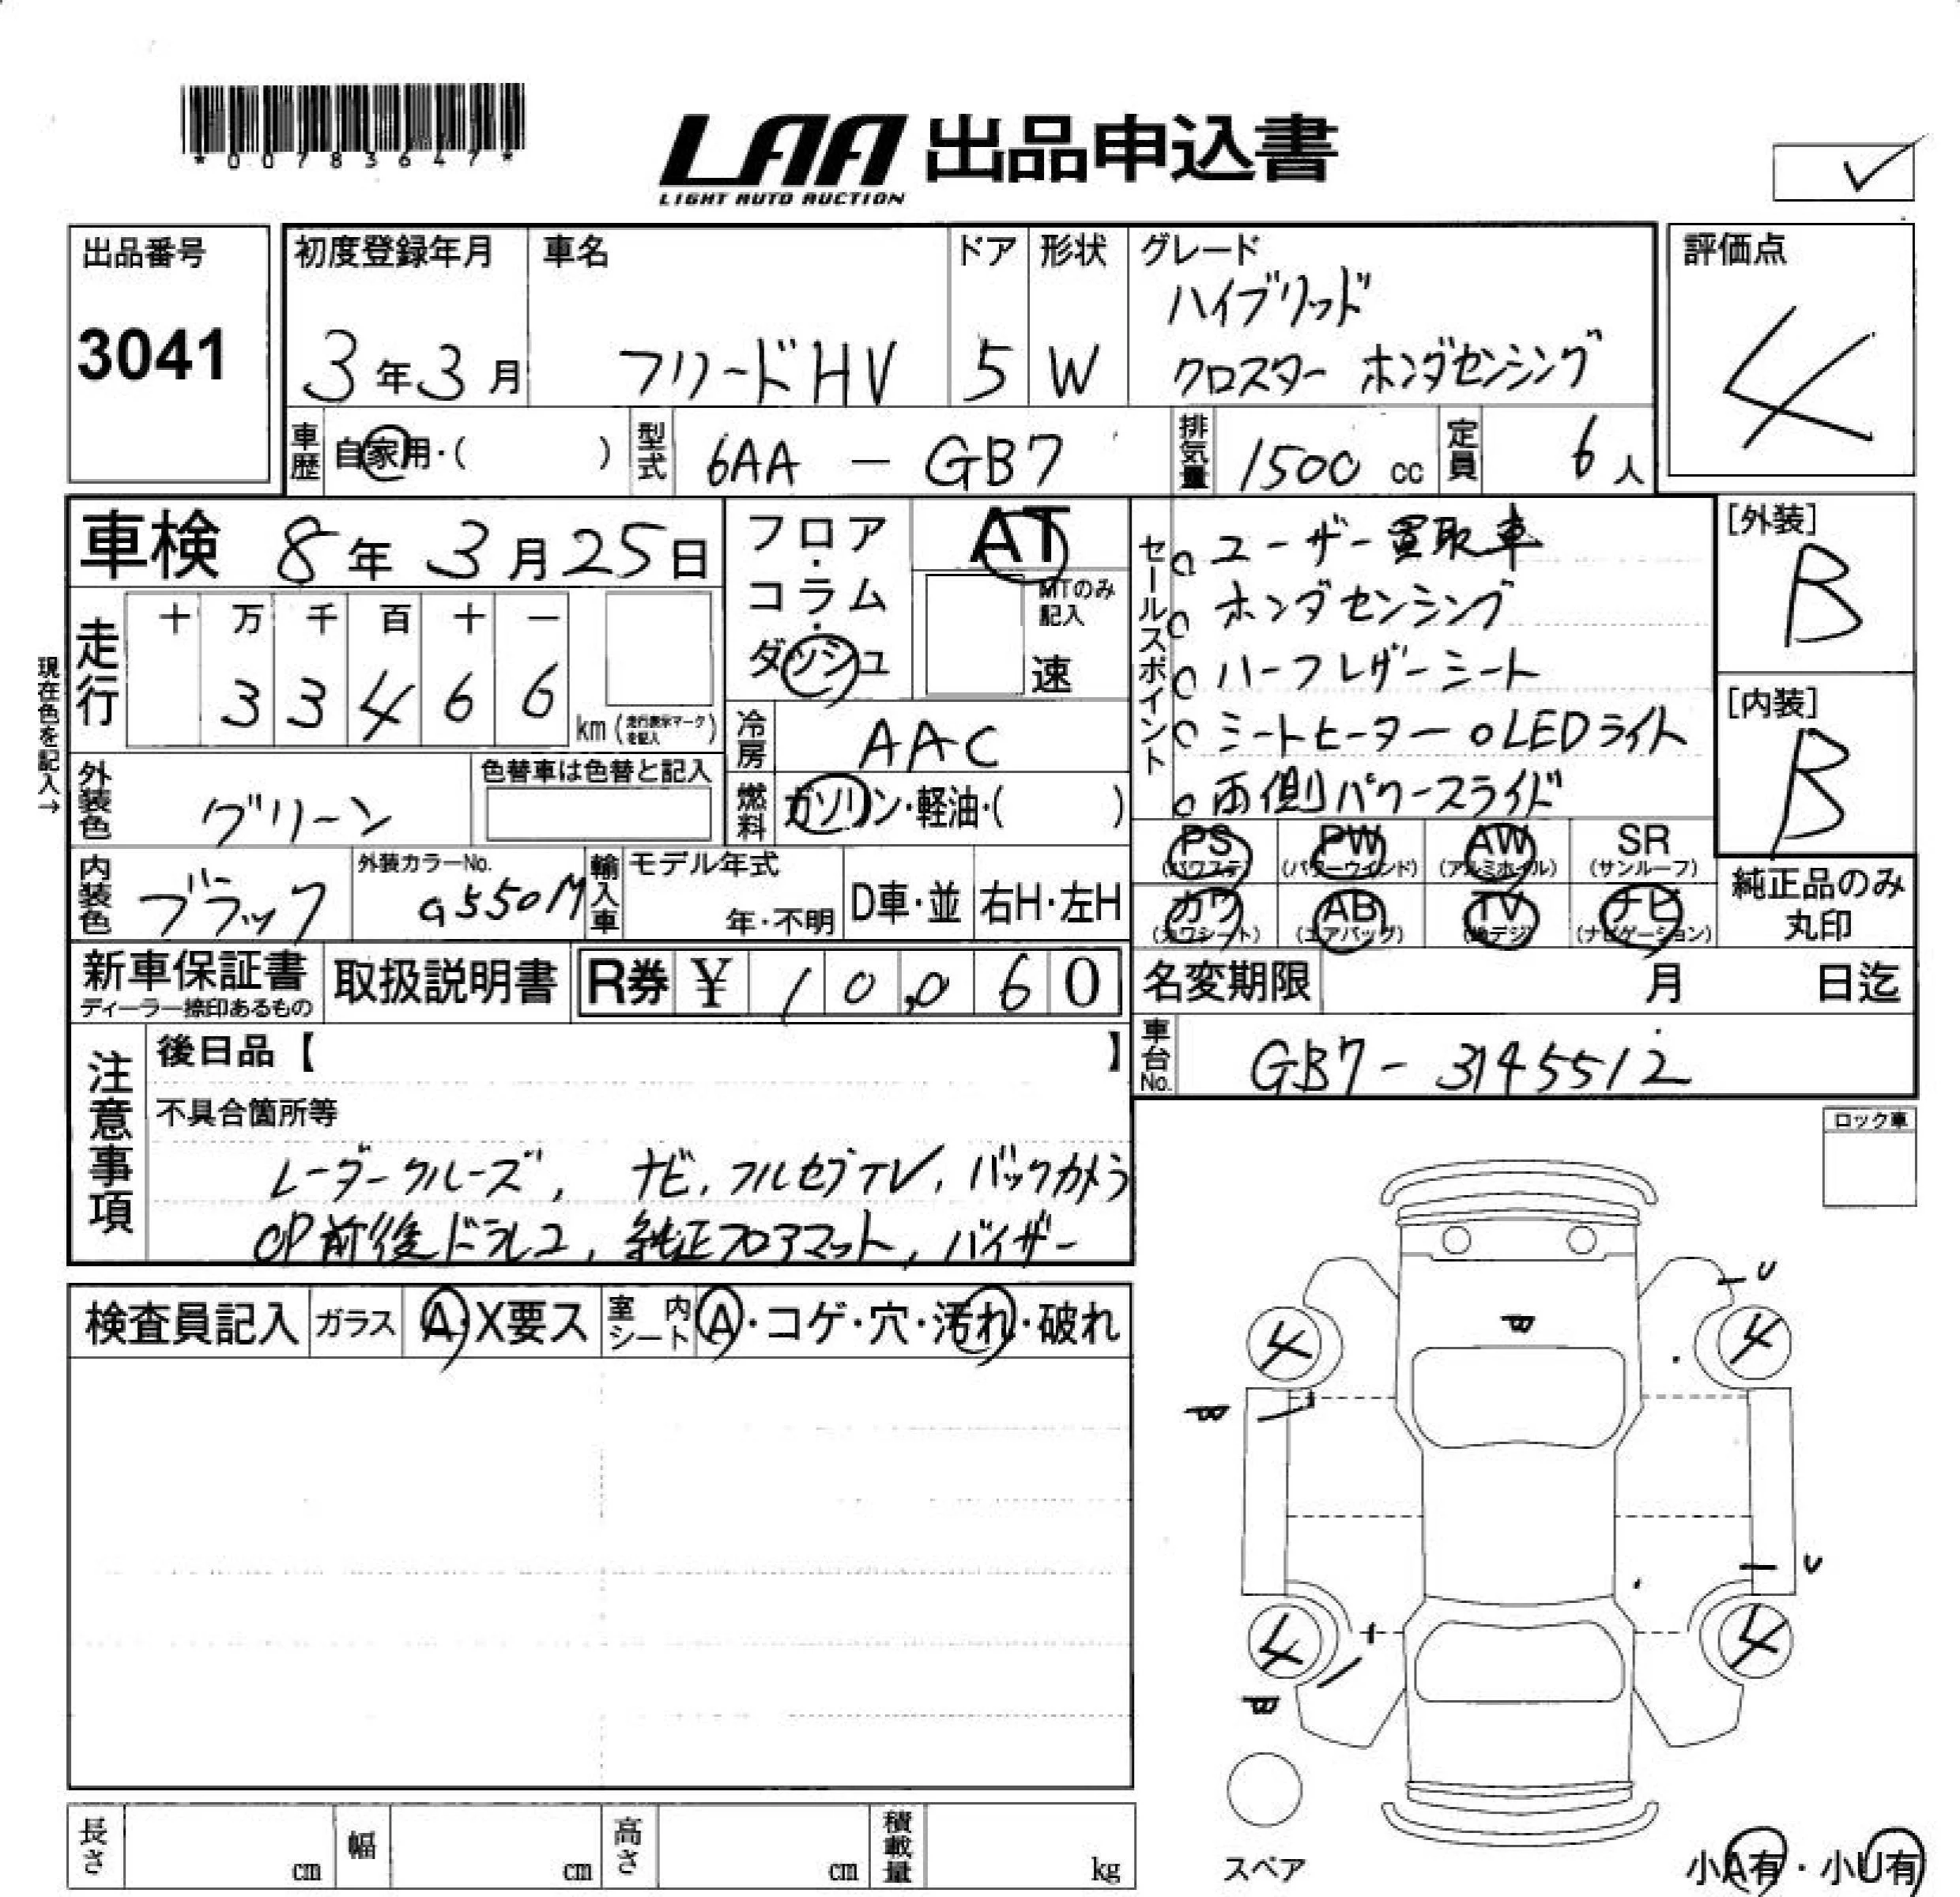 *00783647*
LAA 出品申込書
LIGHT AUTO AUCTION
出品番号
3041
初度登録年月
3年3月
車名
フリードHV
ドア
5
形状
W
グレード
ハイブリッド
クロスター ホンダセンシング
評価点
4
車歴 自家用・( )
型式 6AA - GB7
排気量 1500 cc
定員 6人
車検 8年3月25日
フロア・コラム・ダッシュ
AT
MTのみ記入
速
セールスポイント
○ユーザー買取車
○ホンダセンシング
○ハーフレザーシート
○シートヒーター ○LEDライト
○両側パワースライド
[外装]
B
[内装]
B
現在色を記入→
走行
十 万 千 百 十 一
3 3 4 6 6
km(走行表示マークを記入)
冷房 AAC
外装色 グリーン
色替車は色替と記入
燃料 ガソリン・軽油・( )
内装色 ブラック
外装カラーNo.
G550M
輸入車
モデル年式
年・不明
D車・並
右H・左H
PS (パワステ)
PW (パワーウインド)
AW (アルミホイル)
SR (サンルーフ)
カワ (カワシート)
AB (エアバッグ)
TV (地デジ)
ナビ (ナビゲーション)
純正品のみ丸印
新車保証書
ディーラー捺印あるもの
取扱説明書
R券 ¥ 10,060
名変期限 月 日迄
車台No. GB7-3145512
注意事項
後日品【 】
不具合箇所等
レーダークルーズ, ナビ, フルセグTV, バックカメラ
OP前後ドラレコ, 純正フロアマット, バイザー
ロック車
検査員記入
ガラス A・X要ス
室内シート A・コゲ・穴・汚れ・破れ
U
B
4
4
B
U
4
4
B
スペア
長さ cm
幅 cm
高さ cm
積載量 kg
小A有・小U有